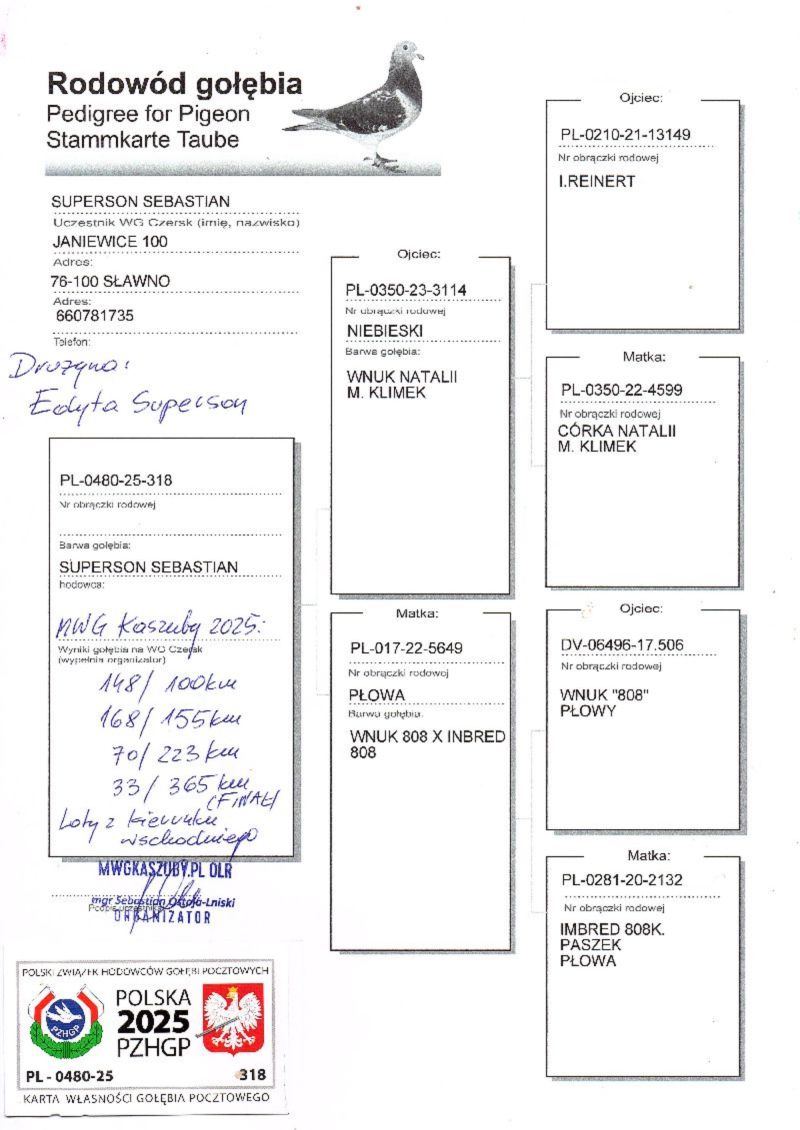 Rodowód gołębia
Pedigree for Pigeon
Stammkarte Taube
SUPERSON SEBASTIAN
Uczestnik WG Czersk (imię, nazwisko)
JANIEWICE 100
Adres:
76-100 SŁAWNO
Adres:
660781735
Telefon:
Drużyna:
Edyta Superson
PL-0480-25-318
Nr obrączki rodowej
Barwa gołębia:
SUPERSON SEBASTIAN
hodowca:
MWG Kaszuby 2025:
Wyniki gołębia na WG Czersk
(wypełnia organizator)
148/ 100km
168/ 155km
70/ 223km
33/ 365km
(FINAŁ)
Loty z kierunku
wschodniego
MWGKASZUBY.PL OLR
mgr Sebastian Ostoja-Lniski
Podpis uczestnika
ORGANIZATOR
Ojciec:
PL-0350-23-3114
Nr obrączki rodowej
NIEBIESKI
Barwa gołębia:
WNUK NATALII
M. KLIMEK
Matka:
PL-017-22-5649
Nr obrączki rodowej
PŁOWA
Barwa gołębia:
WNUK 808 X INBRED
808
Ojciec:
PL-0210-21-13149
Nr obrączki rodowej
I.REINERT
Matka:
PL-0350-22-4599
Nr obrączki rodowej
CÓRKA NATALII
M. KLIMEK
Ojciec:
DV-06496-17.506
Nr obrączki rodowej
WNUK "808"
PŁOWY
Matka:
PL-0281-20-2132
Nr obrączki rodowej
IMBRED 808K.
PASZEK
PŁOWA
POLSKI ZWIĄZEK HODOWCÓW GOŁĘBI POCZTOWYCH
PZHGP
POLSKA
2025
PZHGP
PL - 0480-25 318
KARTA WŁASNOŚCI GOŁĘBIA POCZTOWEGO